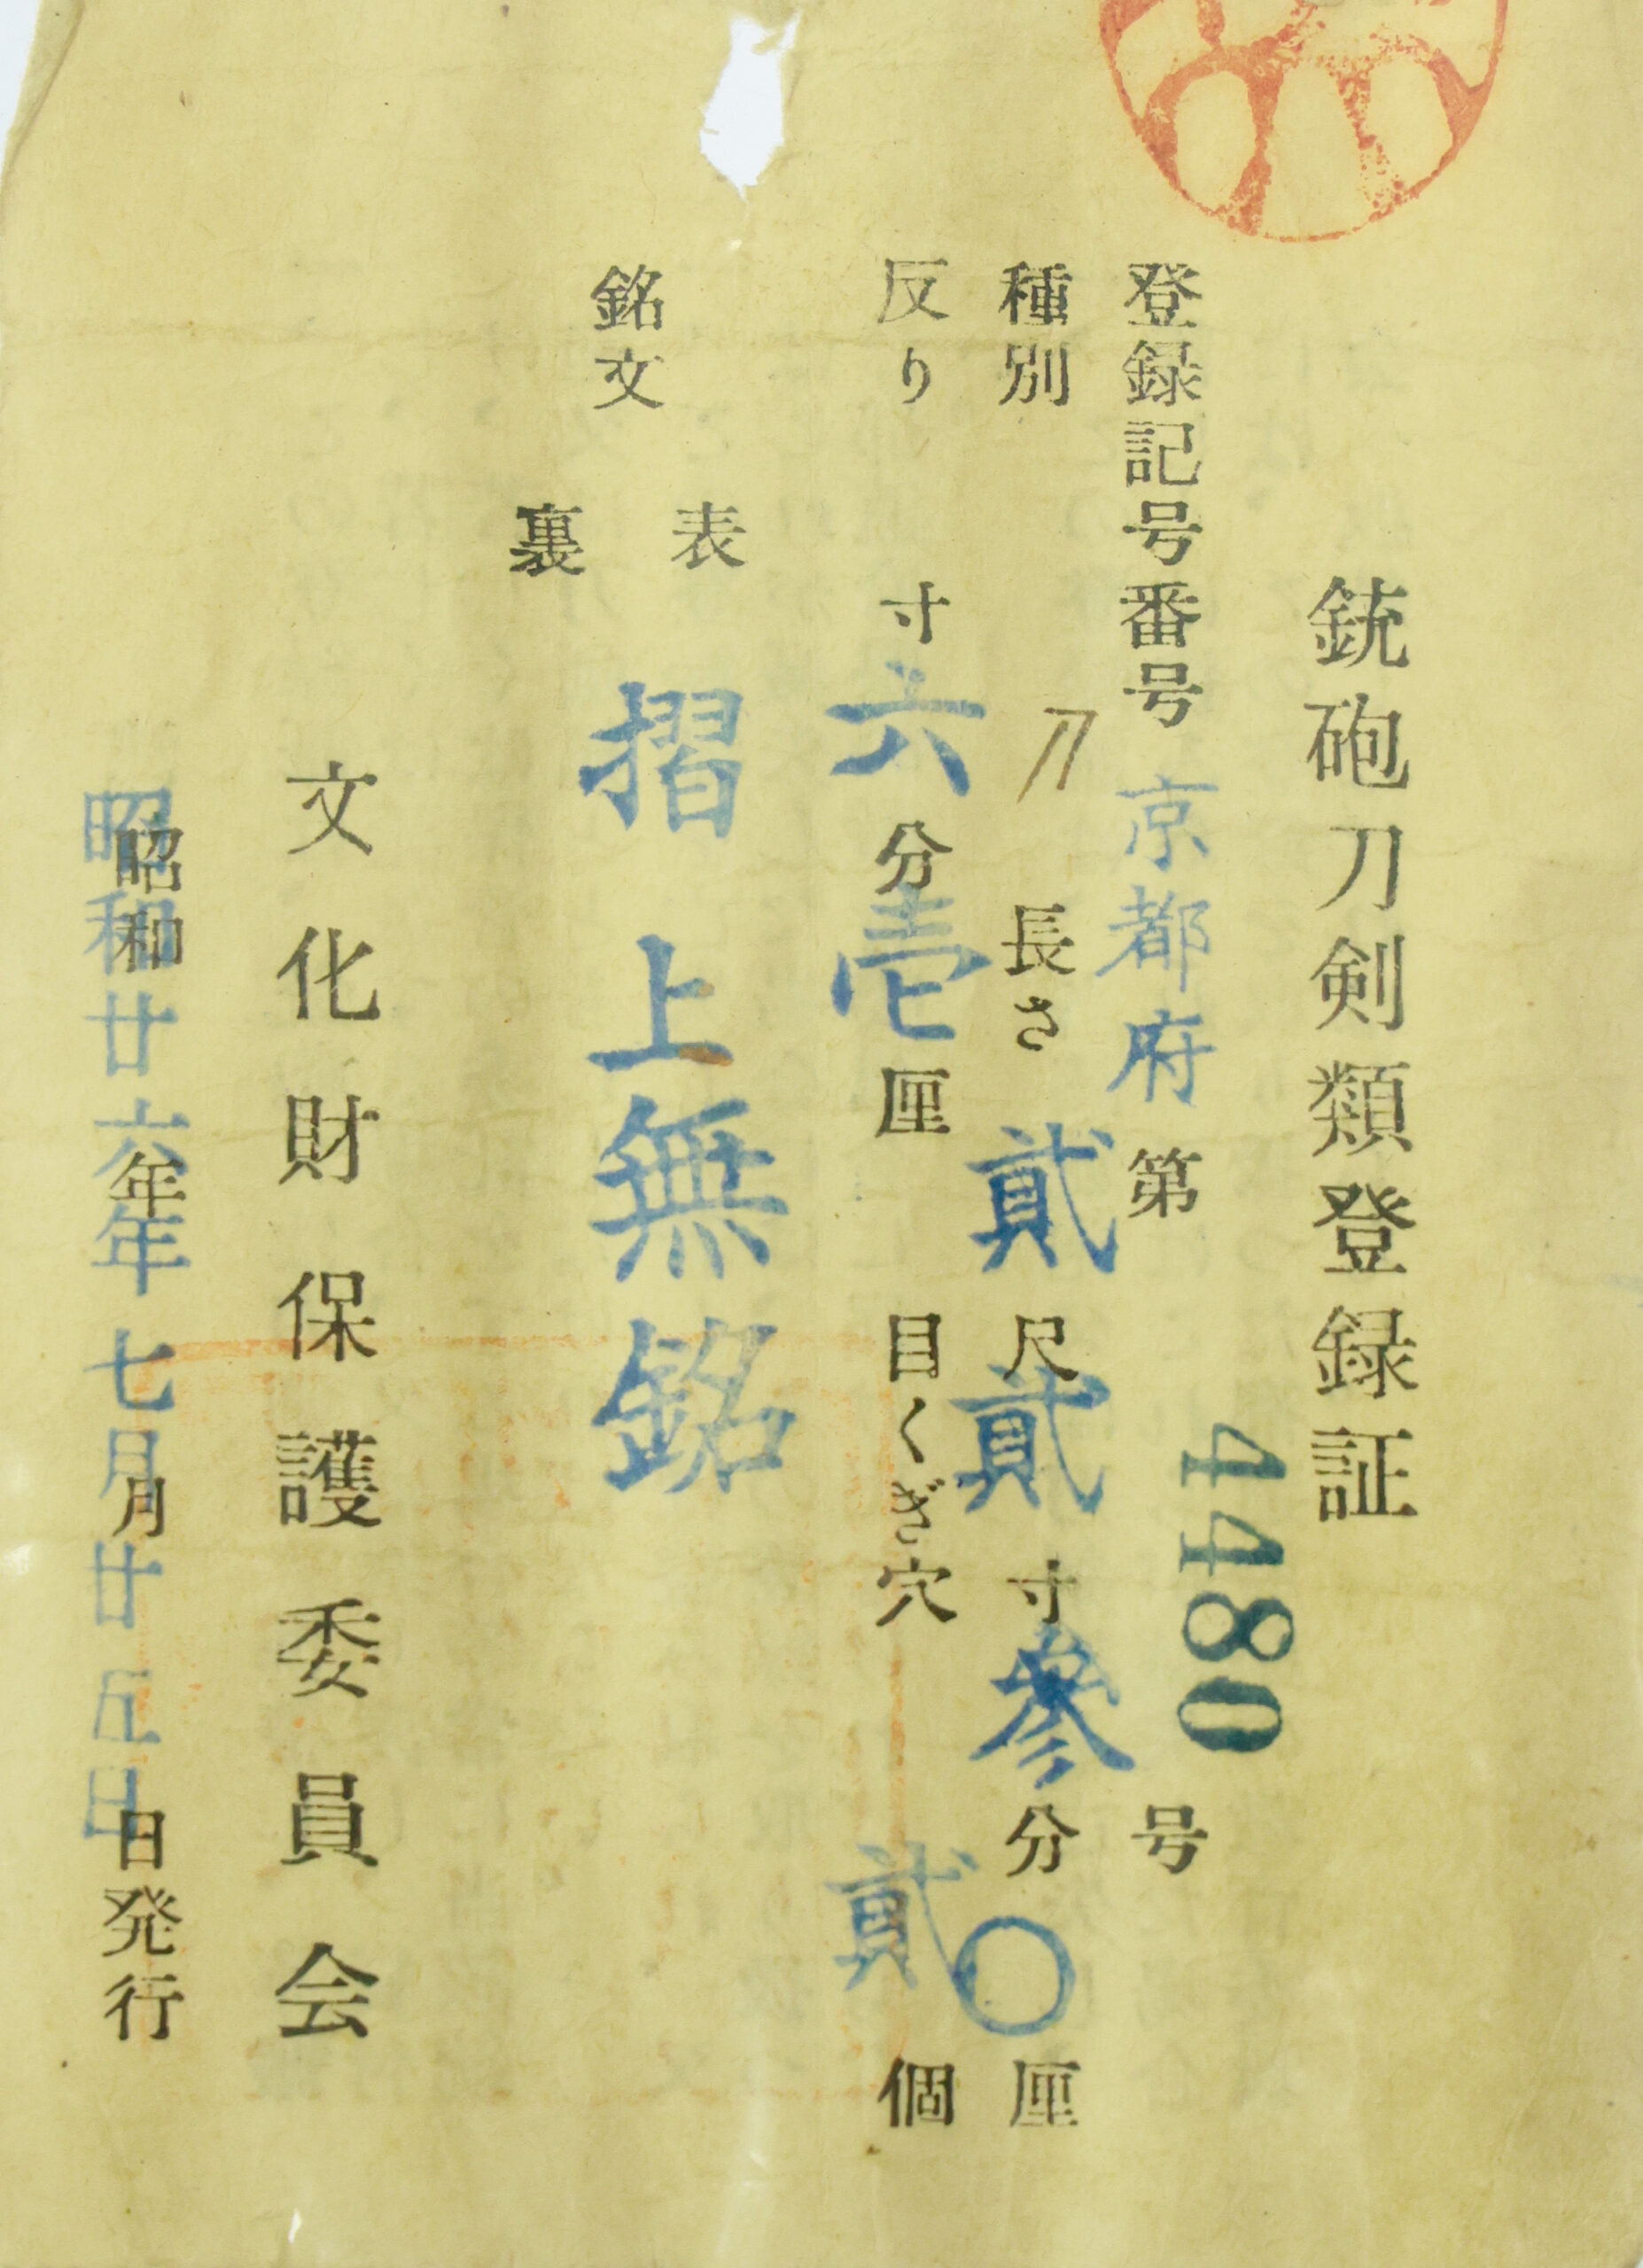 銃砲刀剣類登録証
登録記号番号 京都府 第 4480 号
種別 刀 長さ 貳 尺 貳 寸 参 分 〇 厘
反り 寸 六 分 壱 厘 目くぎ穴 貳 個
銘文
表
摺上無銘
裏
文化財保護委員会
昭和 年 月 日発行
昭和廿六年七月廿五日